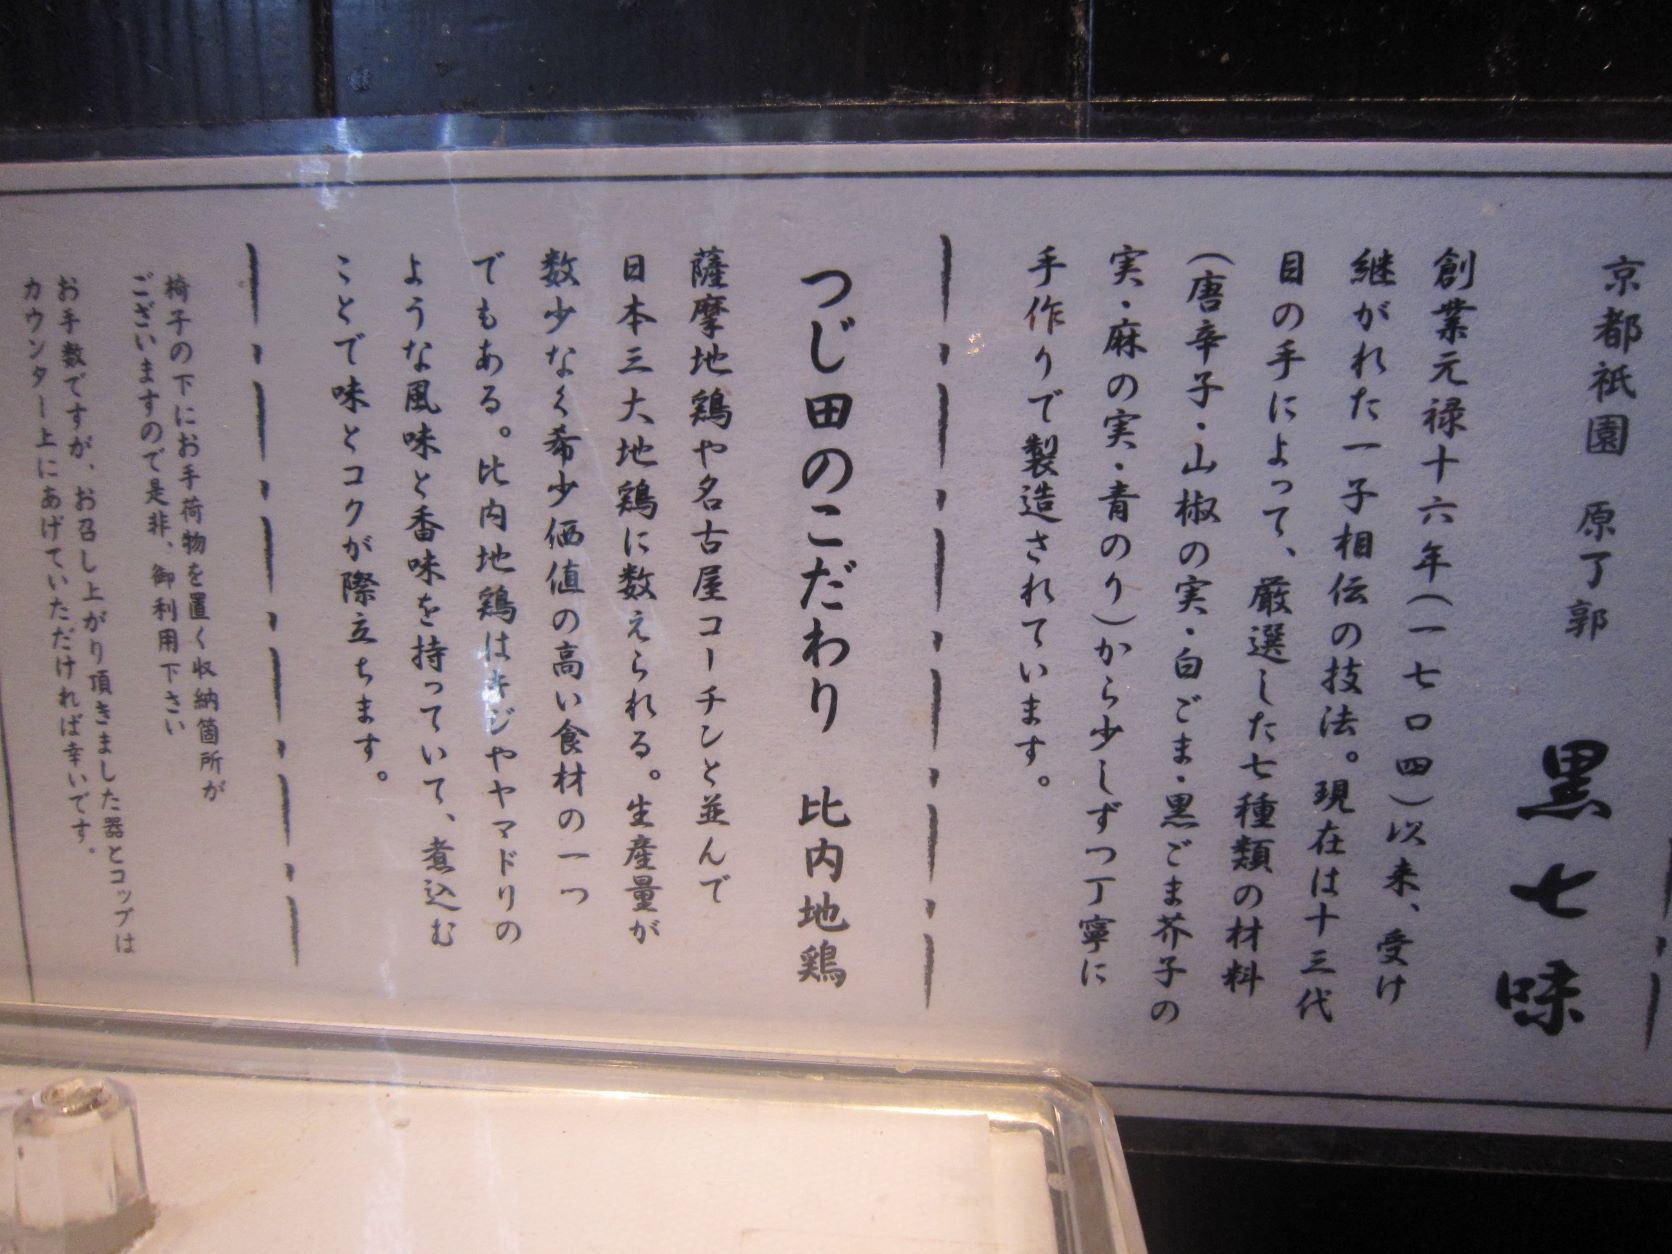 京都祇園　原了郭　黒七味
創業元禄十六年（一七〇四）以来、受け
継がれた一子相伝の技法。現在は十三代
目の手によって、厳選した七種類の材料
（唐辛子・山椒の実・白ごま・黒ごま芥子の
実・麻の実・青のり）から少しずつ丁寧に
手作りで製造されています。
つじ田のこだわり　比内地鶏
薩摩地鶏や名古屋コーチンと並んで
日本三大地鶏に数えられる。生産量が
数少なく希少価値の高い食材の一つ
でもある。比内地鶏はキジやヤマドリの
ような風味と香味を持っていて、煮込む
ことで味とコクが際立ちます。
椅子の下にお手荷物を置く収納箇所が
ございますので是非、御利用下さい
お手数ですが、お召し上がり頂きました器とコップは
カウンター上にあげていただければ幸いです。